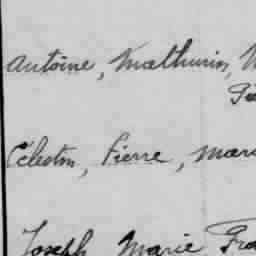 Antoine, Mathurin,
Célestin, Pierre, Mari
Joseph Marie Fra